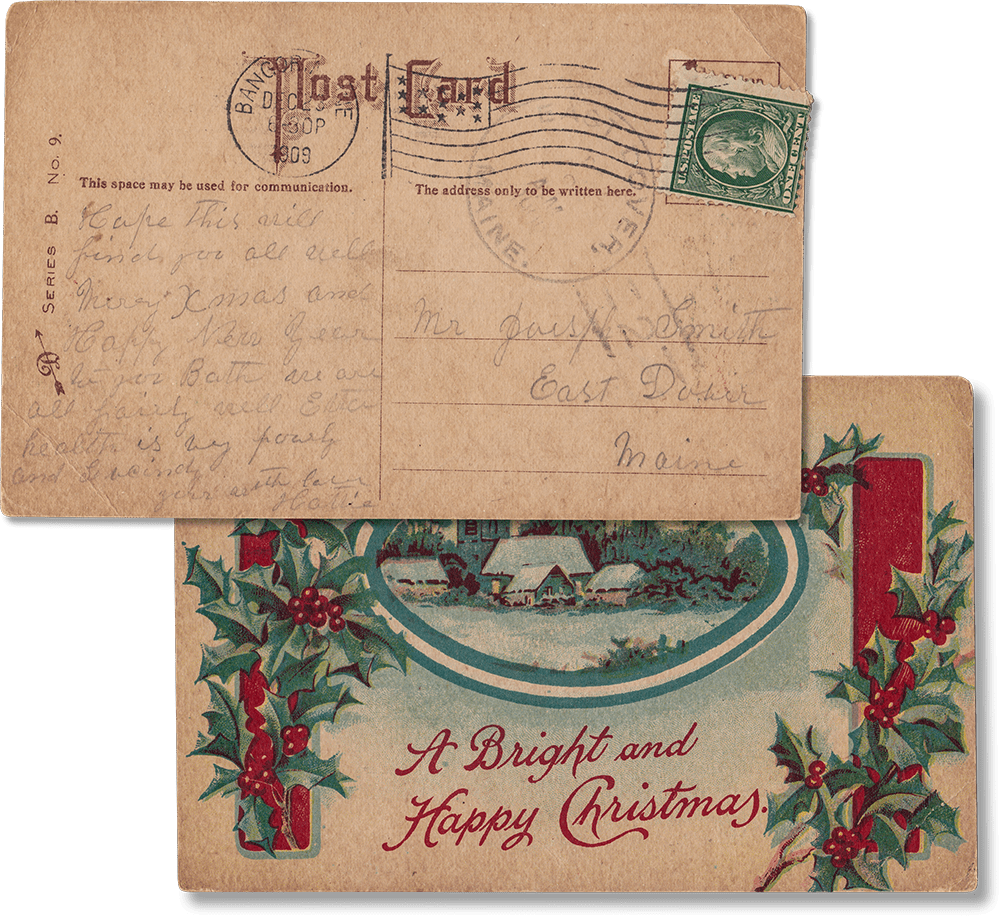 Post Card
BANGOR
DEC
8-30P
1909
U.S. POSTAGE
ONE CENT
This space may be used for communication.
The address only to be written here.
SERIES B. No. 9.
MAINE.
Hope this will
find you all well
Merry Xmas and
Happy New Year
to you Both we are
all fairly well
health is very
and
with love
Hattie
Mr Joseph Smith
East Dover
Maine
A Bright and
Happy Christmas.